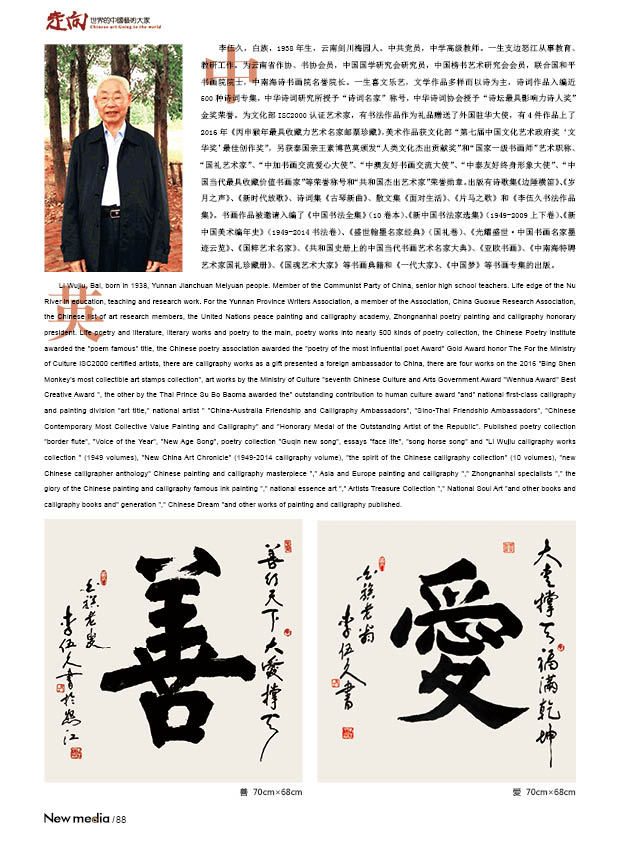 走向世界的中國藝術大家
Chinese art Going to the world
中
李伍久，白族，1938 年生，云南剑川梅园人。中共党员，中学高级教师。一生支边怒江从事教育、
教研工作。为云南省作协、书协会员，中国国学研究会研究员，中国榜书艺术研究会会员，联合国和平
书画院院士，中南海诗书画院名誉院长。一生喜文乐艺，文学作品多样而以诗为主，诗词作品入编近
500 种诗词专集，中华诗词研究所授予“诗词名家”称号，中华诗词协会授予“诗坛最具影响力诗人奖”
金奖荣誉。为文化部 ISC2000 认证艺术家，有书法作品作为礼品赠送了外国驻华大使，有 4 件作品上了
2016 年《丙申猴年最具收藏力艺术名家邮票珍藏》，美术作品获文化部“第七届中国文化艺术政府奖‘文
华奖’最佳创作奖”，另获泰国亲王素博芭莫颁发“人类文化杰出贡献奖”和“国家一级书画师”艺术职称、
“国礼艺术家”、“中加书画交流爱心大使”、“中澳友好书画交流大使”、“中泰友好终身形象大使”、“中
国当代最具收藏价值书画家”等荣誉称号和“共和国杰出艺术家”荣誉勋章。出版有诗歌集《边陲横笛》、《岁
月之声》、《新时代放歌》、诗词集《古琴新曲》、散文集《面对生活》、《片马之歌》和《李伍久书法作品
集》。书画作品被邀请入编了《中国书法全集》（10 卷本）、《新中国书法家选集》（1949-2009 上下卷）、《新
中国美术编年史》（1949-2014 书法卷）、《盛世翰墨名家经典》（国礼卷）、《光耀盛世·中国书画名家墨
迹云览》、《国粹艺术名家》、《共和国史册上的中国当代书画艺术名家大典》、《亚欧书画》、《中南海特聘
艺术家国礼珍藏册》、《国魂艺术大家》等书画典籍和《一代大家》、《中国梦》等书画专集的出版。
英
Li Wujiu, Bai, born in 1938, Yunnan Jianchuan Meiyuan people. Member of the Communist Party of China, senior high school teachers. Life edge of the Nu
River in education, teaching and research work. For the Yunnan Province Writers Association, a member of the Association, China Guoxue Research Association,
the Chinese list of art research members, the United Nations peace painting and calligraphy academy, Zhongnanhai poetry painting and calligraphy honorary
president. Life poetry and literature, literary works and poetry to the main, poetry works into nearly 500 kinds of poetry collection, the Chinese Poetry Institute
awarded the "poem famous" title, the Chinese poetry association awarded the "poetry of the most influential poet Award" Gold Award honor The For the Ministry
of Culture ISC2000 certified artists, there are calligraphy works as a gift presented a foreign ambassador to China, there are four works on the 2016 "Bing Shen
Monkey's most collectible art stamps collection", art works by the Ministry of Culture "seventh Chinese Culture and Arts Government Award "Wenhua Award" Best
Creative Award ", the other by the Thai Prince Su Bo Baoma awarded the" outstanding contribution to human culture award "and" national first-class calligraphy
and painting division "art title," national artist " "China-Australia Friendship and Calligraphy Ambassadors", "Sino-Thai Friendship Ambassadors", "Chinese
Contemporary Most Collective Value Painting and Calligraphy" and "Honorary Medal of the Outstanding Artist of the Republic". Published poetry collection
"border flute", "Voice of the Year", "New Age Song", poetry collection "Guqin new song", essays "face life", "song horse song" and "Li Wujiu calligraphy works
collection " (1949 volumes), "New China Art Chronicle" (1949-2014 calligraphy volume), "the spirit of the Chinese calligraphy collection" (10 volumes), "new
Chinese calligrapher anthology" Chinese painting and calligraphy masterpiece "," Asia and Europe painting and calligraphy "," Zhongnanhai specialists "," the
glory of the Chinese painting and calligraphy famous ink painting "," national essence art "," Artists Treasure Collection "," National Soul Art "and other books and
calligraphy books and" generation "," Chinese Dream "and other works of painting and calligraphy published.
善行天下大爱撑天
善
白族老叟
李伍久书于怒江
大爱撑天福满乾坤
愛
白族老翁
李伍久书
善 70cm×68cm
愛 70cm×68cm
New media / 88